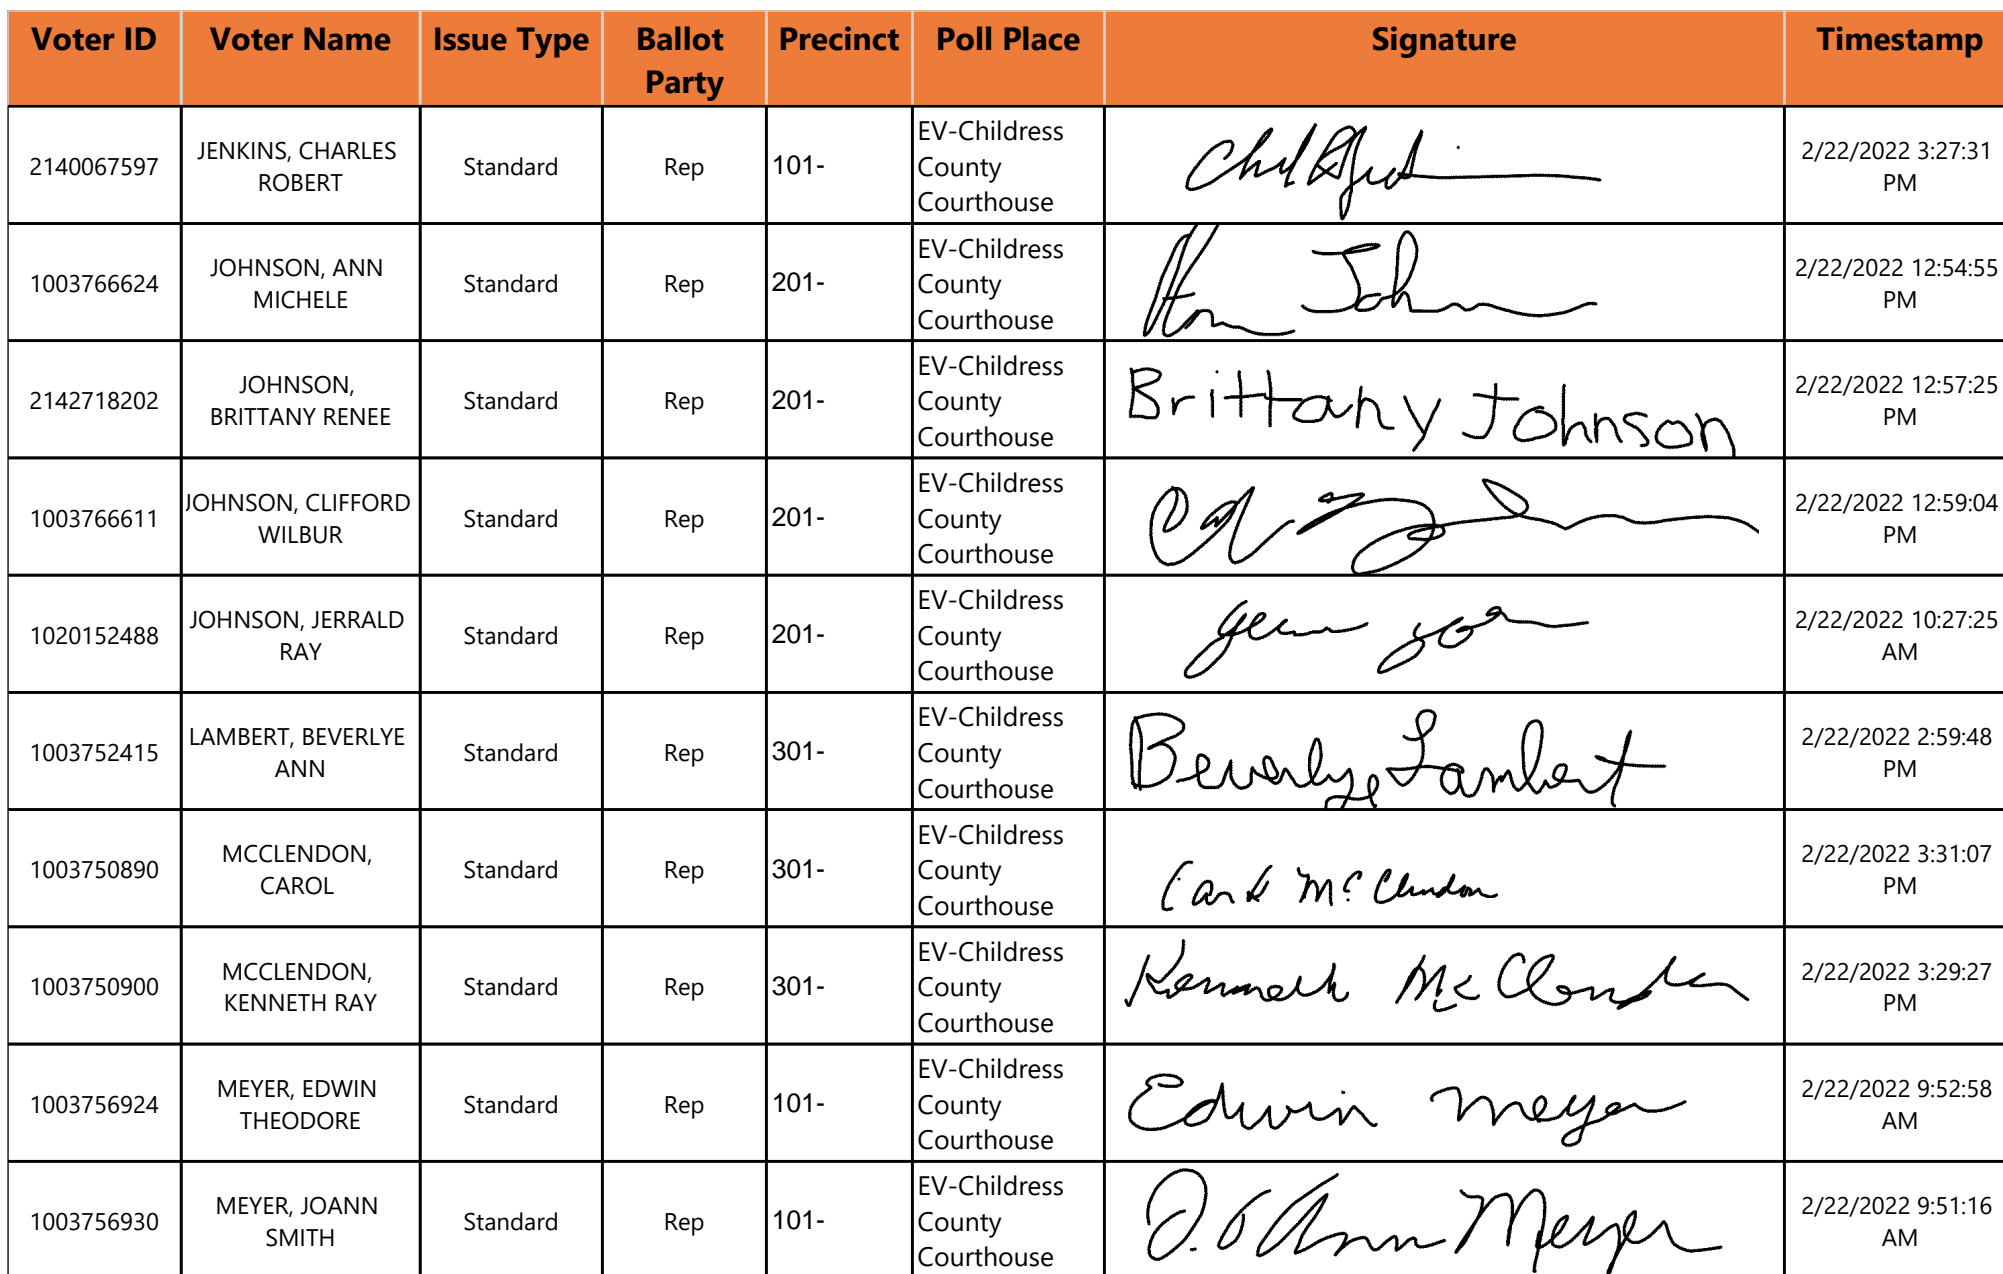 Voter ID Voter Name Issue Type Ballot Party Precinct Poll Place Signature Timestamp
2140067597 JENKINS, CHARLES ROBERT Standard Rep 101- EV-Childress County Courthouse 2/22/2022 3:27:31 PM
1003766624 JOHNSON, ANN MICHELE Standard Rep 201- EV-Childress County Courthouse 2/22/2022 12:54:55 PM
2142718202 JOHNSON, BRITTANY RENEE Standard Rep 201- EV-Childress County Courthouse Brittany Johnson 2/22/2022 12:57:25 PM
1003766611 JOHNSON, CLIFFORD WILBUR Standard Rep 201- EV-Childress County Courthouse 2/22/2022 12:59:04 PM
1020152488 JOHNSON, JERRALD RAY Standard Rep 201- EV-Childress County Courthouse 2/22/2022 10:27:25 AM
1003752415 LAMBERT, BEVERLYE ANN Standard Rep 301- EV-Childress County Courthouse Beverlye Lambert 2/22/2022 2:59:48 PM
1003750890 MCCLENDON, CAROL Standard Rep 301- EV-Childress County Courthouse Carol McClendon 2/22/2022 3:31:07 PM
1003750900 MCCLENDON, KENNETH RAY Standard Rep 301- EV-Childress County Courthouse Kenneth McClendon 2/22/2022 3:29:27 PM
1003756924 MEYER, EDWIN THEODORE Standard Rep 101- EV-Childress County Courthouse Edwin Meyer 2/22/2022 9:52:58 AM
1003756930 MEYER, JOANN SMITH Standard Rep 101- EV-Childress County Courthouse Jo Ann Meyer 2/22/2022 9:51:16 AM